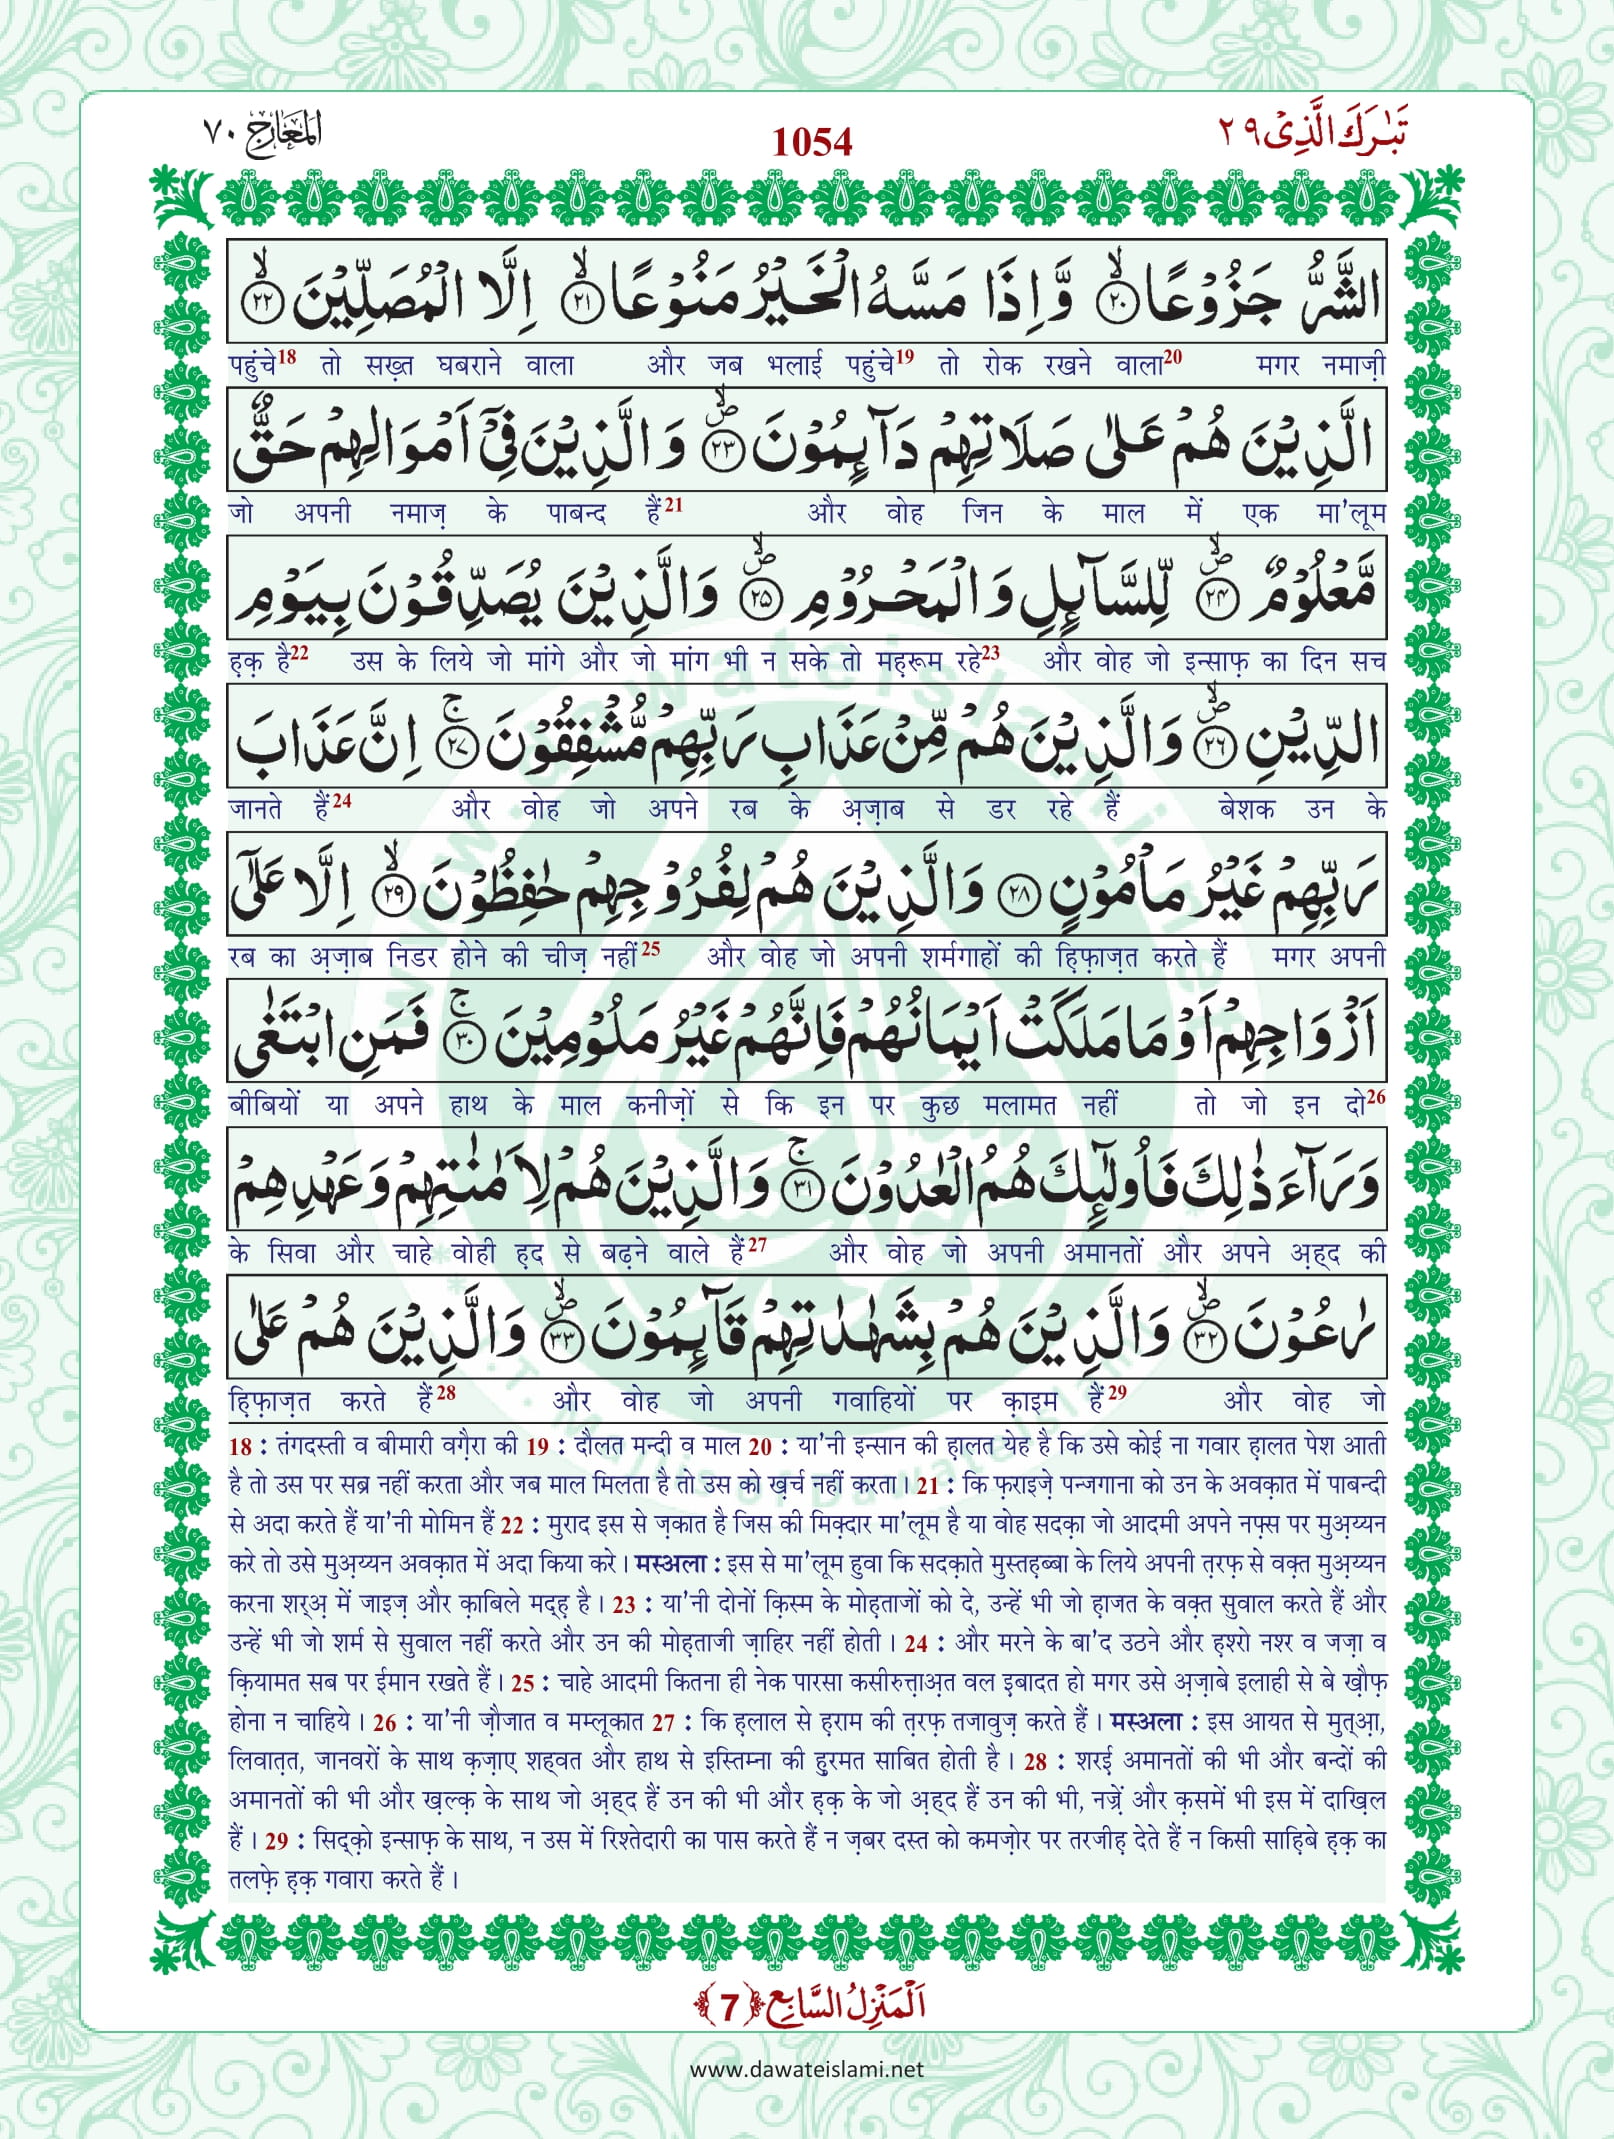 تَبٰرَكَ الَّذِیْ ٢٩
1054
اَلْمَعَارِج ٧٠
الشَّرُّ جَزُوْعًا ۙ﴿۲۰﴾ وَّ اِذَا مَسَّهُ الْخَیْرُ مَنُوْعًا ۙ﴿۲۱﴾ اِلَّا الْمُصَلِّیْنَ ۙ﴿۲۲﴾
पहुंचे18 तो सख़्त घबराने वाला और जब भलाई पहुंचे19 तो रोक रखने वाला20 मगर नमाज़ी
الَّذِیْنَ هُمْ عَلٰی صَلَاتِهِمْ دَآىِٕمُوْنَ ۪ۙ﴿۲۳﴾ وَ الَّذِیْنَ فِیْۤ اَمْوَالِهِمْ حَقٌّ
जो अपनी नमाज़ के पाबन्द हैं21 और वोह जिन के माल में एक मा'लूम
مَّعْلُوْمٌ ۪ۙ﴿۲۴﴾ لِّلسَّآىِٕلِ وَ الْمَحْرُوْمِ ۪ۙ﴿۲۵﴾ وَ الَّذِیْنَ یُصَدِّقُوْنَ بِیَوْمِ
ह़क़ है22 उस के लिये जो मांगे और जो मांग भी न सके तो मह़रूम रहे23 और वोह जो इन्साफ़ का दिन सच
الدِّیْنِ ۪ۙ﴿۲۶﴾ وَ الَّذِیْنَ هُمْ مِّنْ عَذَابِ رَبِّهِمْ مُّشْفِقُوْنَ ۚ﴿۲۷﴾ اِنَّ عَذَابَ
जानते हैं24 और वोह जो अपने रब के अ़ज़ाब से डर रहे हैं बेशक उन के
رَبِّهِمْ غَیْرُ مَاْمُوْنٍ ﴿۲۸﴾ وَ الَّذِیْنَ هُمْ لِفُرُوْجِهِمْ حٰفِظُوْنَ ۙ﴿۲۹﴾ اِلَّا عَلٰۤی
रब का अ़ज़ाब निडर होने की चीज़ नहीं25 और वोह जो अपनी शर्मगाहों की ह़िफ़ाज़त करते हैं मगर अपनी
اَزْوَاجِهِمْ اَوْ مَا مَلَكَتْ اَیْمَانُهُمْ فَاِنَّهُمْ غَیْرُ مَلُوْمِیْنَ ۚ﴿۳۰﴾ فَمَنِ ابْتَغٰی
बीबियों या अपने हाथ के माल कनीज़ों से कि इन पर कुछ मलामत नहीं तो जो इन दो26
وَرَآءَ ذٰلِكَ فَاُولٰٓىِٕكَ هُمُ الْعٰدُوْنَ ۚ﴿۳۱﴾ وَ الَّذِیْنَ هُمْ لِاَمٰنٰتِهِمْ وَ عَهْدِهِمْ
के सिवा और चाहे वोही ह़द से बढ़ने वाले हैं27 और वोह जो अपनी अमानतों और अपने अ़ह्द की
رٰعُوْنَ ۪ۙ﴿۳۲﴾ وَ الَّذِیْنَ هُمْ بِشَهٰدٰتِهِمْ قَآىِٕمُوْنَ ۪ۙ﴿۳۳﴾ وَ الَّذِیْنَ هُمْ عَلٰی
ह़िफ़ाज़त करते हैं28 और वोह जो अपनी गवाहियों पर क़ाइम हैं29 और वोह जो
18 : तंगदस्ती व बीमारी वग़ैरा की 19 : दौलत मन्दी व माल 20 : या'नी इन्सान की ह़ालत येह है कि उसे कोई ना गवार ह़ालत पेश आती
है तो उस पर सब्र नहीं करता और जब माल मिलता है तो उस को ख़र्च नहीं करता। 21 : कि फ़राइज़े पन्जगाना को उन के अवक़ात में पाबन्दी
से अदा करते हैं या'नी मोमिन हैं 22 : मुराद इस से ज़कात है जिस की मिक़्दार मा'लूम है या वोह सदक़ा जो आदमी अपने नफ़्स पर मुअ़य्यन
करे तो उसे मुअ़य्यन अवक़ात में अदा किया करे। मस्अला : इस से मा'लूम हुवा कि सदक़ाते मुस्तह़ब्बा के लिये अपनी त़रफ़ से वक़्त मुअ़य्यन
करना शर्अ़ में जाइज़ और क़ाबिले मद्ह़ है। 23 : या'नी दोनों क़िस्म के मोह़ताजों को दे, उन्हें भी जो ह़ाजत के वक़्त सुवाल करते हैं और
उन्हें भी जो शर्म से सुवाल नहीं करते और उन की मोह़ताजी ज़ाहिर नहीं होती। 24 : और मरने के बा'द उठने और ह़श्रो नश्र व जज़ा व
क़ियामत सब पर ईमान रखते हैं। 25 : चाहे आदमी कितना ही नेक पारसा कसीरुत्ताअ़त वल इ़बादत हो मगर उसे अ़ज़ाबे इलाही से बे ख़ौफ़
होना न चाहिये। 26 : या'नी ज़ौजात व मम्लूकात 27 : कि ह़लाल से ह़राम की त़रफ़ तजावुज़ करते हैं। मस्अला : इस आयत से मुत्आ़,
लिवात़त, जानवरों के साथ क़ज़ाए शह्वत और हाथ से इस्तिम्ना की हुरमत साबित होती है। 28 : शरई अमानतों की भी और बन्दों की
अमानतों की भी और ख़ल्क़ के साथ जो अ़ह्द हैं उन की भी और ह़क़ के जो अ़ह्द हैं उन की भी, नज़्रें और क़समें भी इस में दाख़िल
हैं। 29 : सिद्क़ो इन्साफ़ के साथ, न उस में रिश्तेदारी का पास करते हैं न ज़बर दस्त को कमज़ोर पर तरजीह़ देते हैं न किसी साह़िबे ह़क़ का
तलफ़े ह़क़ गवारा करते हैं।
اَلْمَنْزِلُ السَّابِع ﴿7﴾
www.dawateislami.net